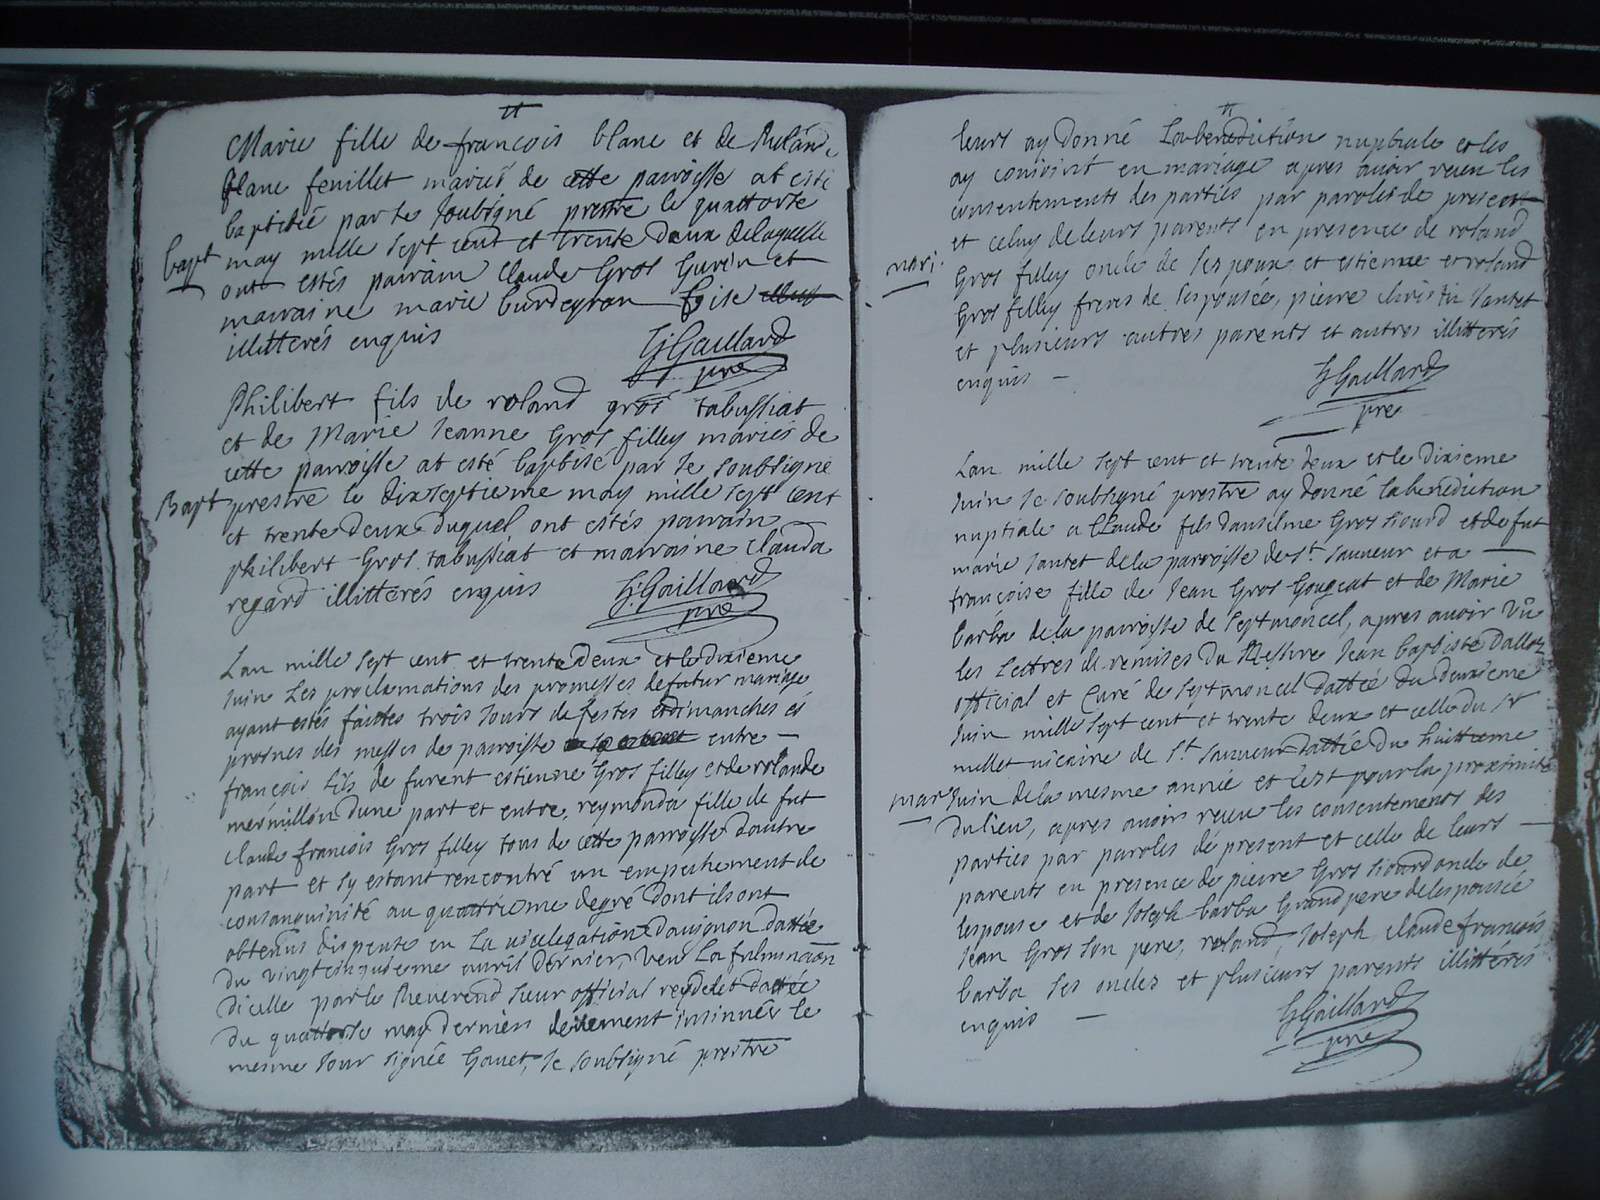 Marie fille de françois blanc et de
blanc feuillet mariés de cette parroisse at esté
baptisée par Je soubsigné prestre le quattorse
Bapt may mille sept cent et trente deux delaquelle
ont estés parrain Claude Gros Gurin et
marraine marie burdeyron
illittérés enquis
G Gaillard
pre
Philibert fils de roland gros tabussiat
et de Marie Jeanne Gros filley mariés de
cette parroisse at esté baptisé par Je soubsigné
Bapt prestre le dixseptieme may mille sept cent
et trente deux duquel ont estés parrain
philibert Gros tabussiat et marraine clauda
regard illittérés enquis
G Gaillard
pre
Lan mille sept cent et trente deux et le dixieme
Juin Les proclamations des promesses de futur mariage
ayant estés faittes trois Jours de festes et dimanches és
prosnes des messes de parroisse entre
françois fils de furent estienne Gros filley et de rolande
mermillon dune part et entre reymonda fille de fut
claude francois Gros filley tous de cette parroisse dautre
part et sy estant rencontré un empechement de
consanguinité au quattrieme degré dont ils ont
obtenus dispense en La vicelegation Davignon dattée
Du vingtcinquieme auril dernier, veu La fulmination
Dicelle par le Reverend Sieur official reydelet dattée
du quattorse may dernier deuement insinuée le
mesme Jour signée Gauet, Je soubsigné prestre
leurs ay Donné La benediction nuptiale et les
ay conjoint en mariage apres auoir receu les
consentements des partiés par paroles de present
et celuy de leurs parents en presence de roland
mari. Gros filley oncle de lespoux et estienne et roland
Gros filley freres de lespousée, pierre christin Jantet
et plusieurs autres parents et autres illitterés
enquis
G Gaillard
pre
Lan mille sept cent et trente deux et le dixieme
Juin Je soubsigné prestre ay donné la benediction
nuptiale a Claude fils danselme Gros siourd et de fut
marie Jantet de la parroisse de St. Sauueur et a
françoise fille de Jean Gros Gougeat et de Marie
barba de la parroisse de Septmoncel, apres auoir vû
les Lettres de remises du Messire Jean baptiste Dalloz
official et Curé de Septmoncel dattée du deuxieme
Juin mille sept cent et trente deux et celle du Sr
millet vicaire de St. Sauueur dattée du huittieme
mar Juin de la mesme année et cest pour la proximité
Du lieu, apres auoir receu les consentements des
parties par paroles de present et celle de leurs
parents en presence de pierre Gros siourd oncle de
lespoux et de Joseph barba Grand pere de lespousée
Jean Gros Son pere, roland, Joseph, claude françois
barba ses oncles et plusieurs parents illittérés
enquis
G Gaillard
pre